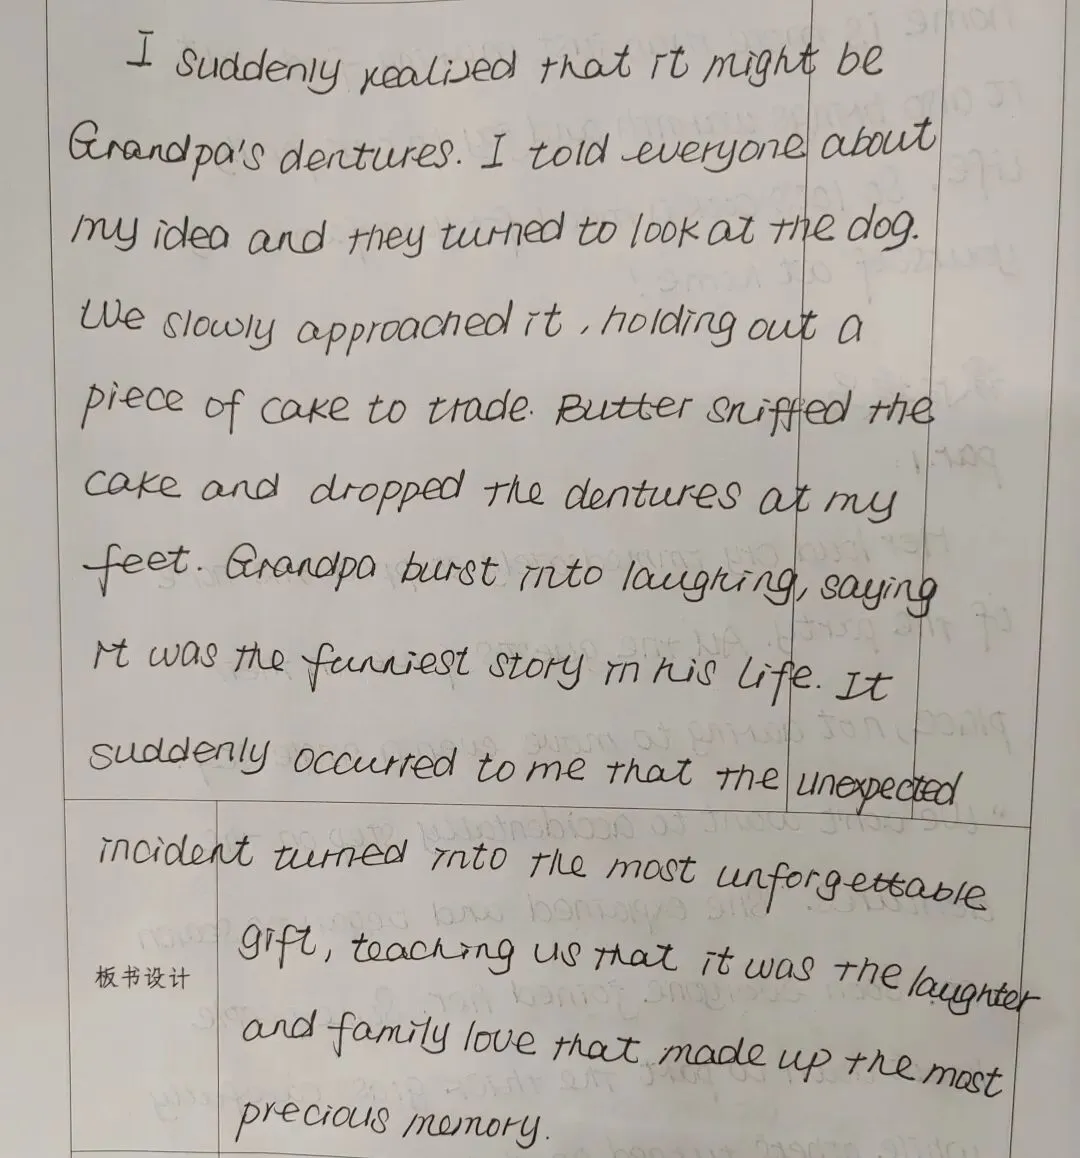 I suddenly realised that it might be
Grandpa's dentures. I told everyone about
my idea and they turned to look at the dog.
We slowly approached it, holding out a
piece of cake to trade. Butter sniffed the
cake and dropped the dentures at my
feet. Grandpa burst into laughing, saying
it was the funniest story in his life. It
suddenly occurred to me that the unexpected
incident turned into the most unforgettable
gift, teaching us that it was the laughter
板书设计
and family love that made up the most
precious memory.